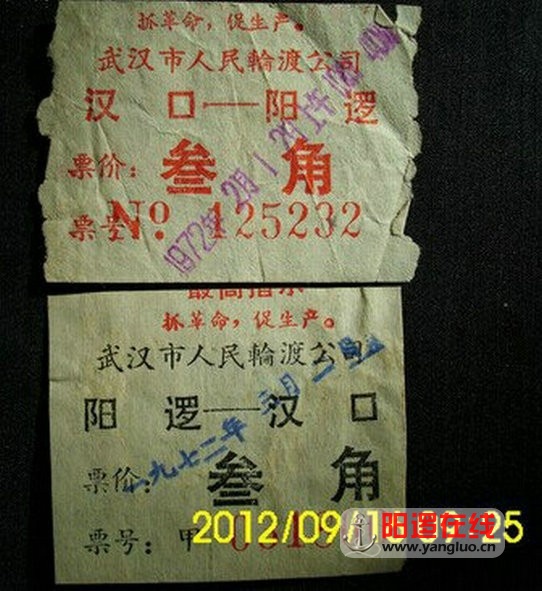 抓革命，促生产。
武汉市人民輪渡公司
汉口——阳逻
票价：叁角
票号 No. 125232
1972年2月1
最高指示
抓革命，促生产。
武汉市人民輪渡公司
阳逻——汉口
一九七二年 月一
票价：叁角
票号：甲
2012/09/1
25
阳逻在线
www.yangluo.cn